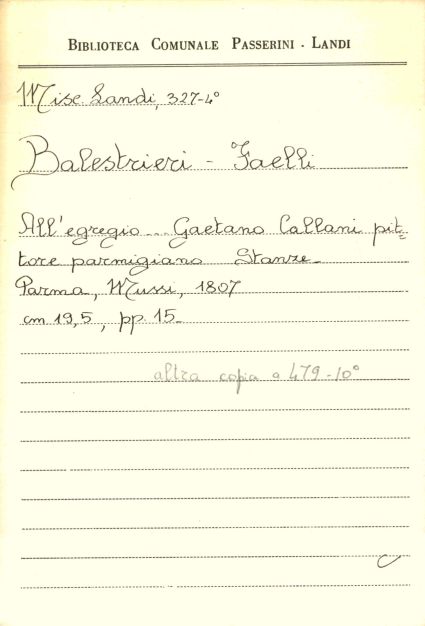 BIBLIOTECA COMUNALE PASSERINI - LANDI
Misc. Landi, 327-4°
Balestrieri - Faelli
All'egregio... Gaetano Callani pit=
tore parmigiano Stanze_
Parma, Mussi, 1807
cm 19,5, pp. 15_
altra copia a 479-10°
C